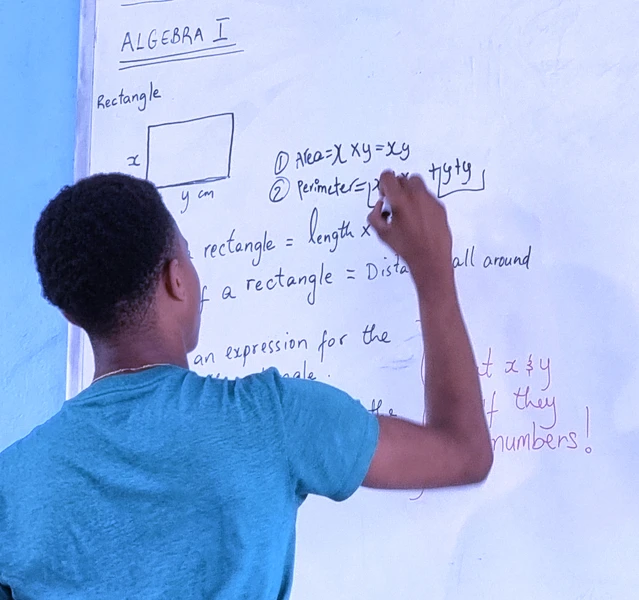 ALGEBRA I
Rectangle
x
y cm
① Area = x × y = xy
② Perimeter = x +y+y
rectangle = length ×
f a rectangle = Dista all around
an expression for the
the
t x & y
f they
numbers!